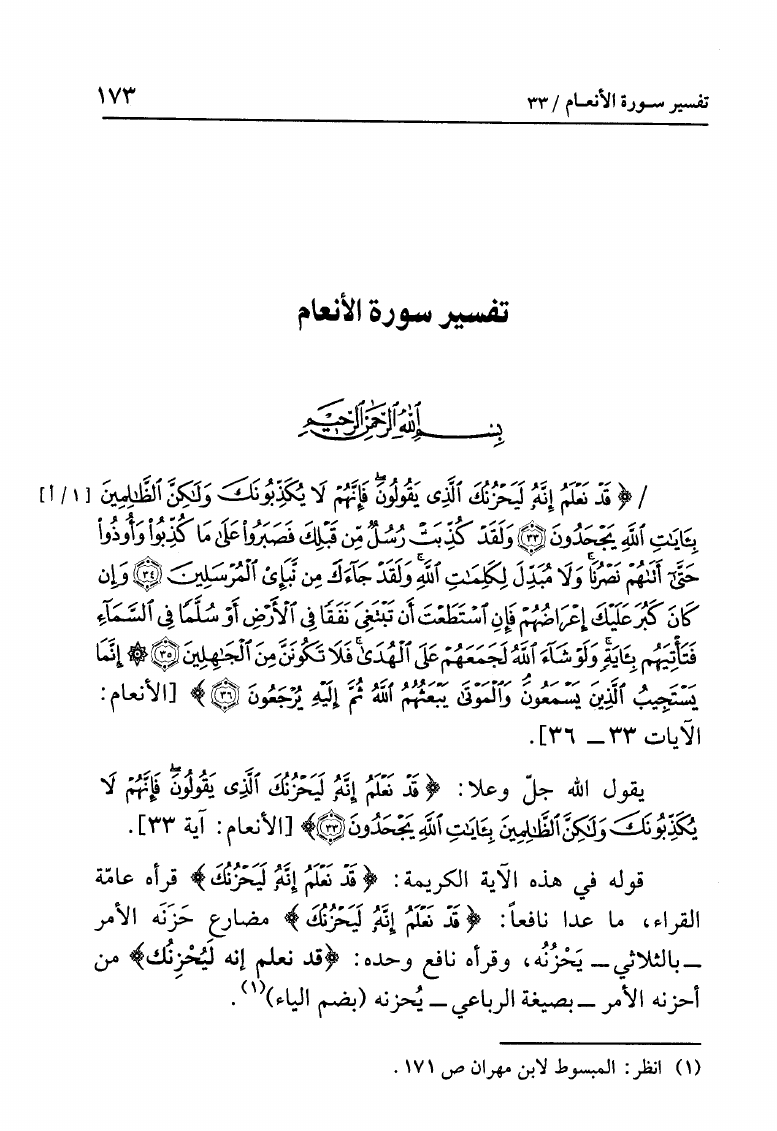 تفسير سورة الأنعام / ٣٣
١٧٣
تفسير سورة الأنعام
بِسْمِ اللَّهِ الرَّحْمَٰنِ الرَّحِيمِ
/ ﴿ قَدْ نَعْلَمُ إِنَّهُۥ لَيَحْزُنُكَ ٱلَّذِى يَقُولُونَۖ فَإِنَّهُمْ لَا يُكَذِّبُونَكَ وَلَٰكِنَّ ٱلظَّٰلِمِينَ [١/أ]
بِـَٔايَٰتِ ٱللَّهِ يَجْحَدُونَ ۝٣٣ وَلَقَدْ كُذِّبَتْ رُسُلٌ مِّن قَبْلِكَ فَصَبَرُوا۟ عَلَىٰ مَا كُذِّبُوا۟ وَأُوذُوا۟
حَتَّىٰٓ أَتَىٰهُمْ نَصْرُنَاۚ وَلَا مُبَدِّلَ لِكَلِمَٰتِ ٱللَّهِۚ وَلَقَدْ جَآءَكَ مِن نَّبَإِى۟ ٱلْمُرْسَلِينَ ۝٣٤ وَإِن
كَانَ كَبُرَ عَلَيْكَ إِعْرَاضُهُمْ فَإِنِ ٱسْتَطَعْتَ أَن تَبْتَغِىَ نَفَقًا فِى ٱلْأَرْضِ أَوْ سُلَّمًا فِى ٱلسَّمَآءِ
فَتَأْتِيَهُم بِـَٔايَةٍۚ وَلَوْ شَآءَ ٱللَّهُ لَجَمَعَهُمْ عَلَى ٱلْهُدَىٰۚ فَلَا تَكُونَنَّ مِنَ ٱلْجَٰهِلِينَ ۝٣٥ ۞ إِنَّمَا
يَسْتَجِيبُ ٱلَّذِينَ يَسْمَعُونَۘ وَٱلْمَوْتَىٰ يَبْعَثُهُمُ ٱللَّهُ ثُمَّ إِلَيْهِ يُرْجَعُونَ ۝٣٦ ﴾ [الأنعام:
الآيات ٣٣ – ٣٦].
يقول الله جلّ وعلا: ﴿ قَدْ نَعْلَمُ إِنَّهُۥ لَيَحْزُنُكَ ٱلَّذِى يَقُولُونَۖ فَإِنَّهُمْ لَا
يُكَذِّبُونَكَ وَلَٰكِنَّ ٱلظَّٰلِمِينَ بِـَٔايَٰتِ ٱللَّهِ يَجْحَدُونَ ۝٣٣﴾ [الأنعام: آية ٣٣].
قوله في هذه الآية الكريمة: ﴿ قَدْ نَعْلَمُ إِنَّهُۥ لَيَحْزُنُكَ ﴾ قرأه عامّة
القراء، ما عدا نافعاً: ﴿ قَدْ نَعْلَمُ إِنَّهُۥ لَيَحْزُنُكَ ﴾ مضارع حَزَنَه الأمر
– بالثلاثي – يَحْزُنُه، وقرأه نافع وحده: ﴿قد نعلم إنه لَيُحْزِنُك﴾ من
أحزنه الأمر – بصيغة الرباعي – يُحزنه (بضم الياء)(١).
(١) انظر: المبسوط لابن مهران ص ١٧١.